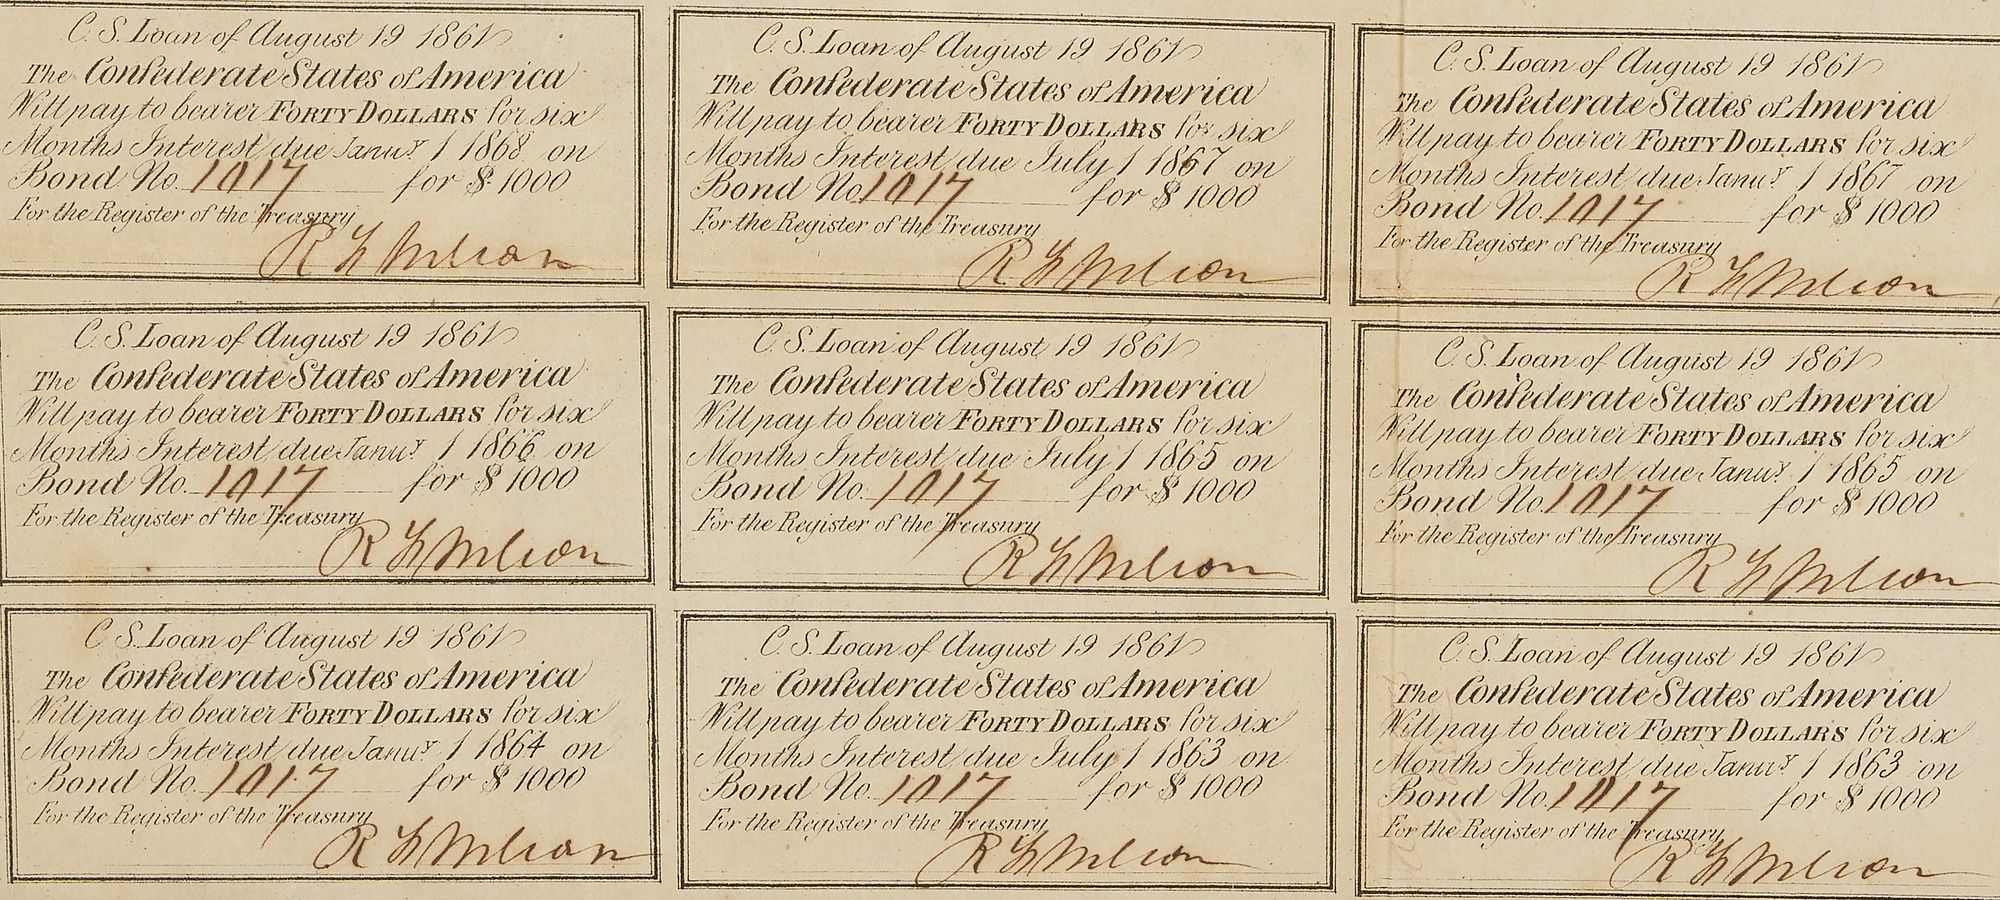 C. S. Loan of August 19 1861
The Confederate States of America
Will pay to bearer FORTY DOLLARS for six
Months Interest due Janu.y 1 1868 on
Bond No. 1017 for $ 1000
For the Register of the Treasury
R H Wilson
C. S. Loan of August 19 1861
The Confederate States of America
Will pay to bearer FORTY DOLLARS for six
Months Interest due July 1 1867 on
Bond No. 1017 for $ 1000
For the Register of the Treasury
R H Wilson
C. S. Loan of August 19 1861
The Confederate States of America
Will pay to bearer FORTY DOLLARS for six
Months Interest due Janu.y 1 1867 on
Bond No. 1017 for $ 1000
For the Register of the Treasury
R H Wilson
C. S. Loan of August 19 1861
The Confederate States of America
Will pay to bearer FORTY DOLLARS for six
Months Interest due Janu.y 1 1866 on
Bond No. 1017 for $ 1000
For the Register of the Treasury
R H Wilson
C. S. Loan of August 19 1861
The Confederate States of America
Will pay to bearer FORTY DOLLARS for six
Months Interest due July 1 1865 on
Bond No. 1017 for $ 1000
For the Register of the Treasury
R H Wilson
C. S. Loan of August 19 1861
The Confederate States of America
Will pay to bearer FORTY DOLLARS for six
Months Interest due Janu.y 1 1865 on
Bond No. 1017 for $ 1000
For the Register of the Treasury
R H Wilson
C. S. Loan of August 19 1861
The Confederate States of America
Will pay to bearer FORTY DOLLARS for six
Months Interest due Janu.y 1 1864 on
Bond No. 1017 for $ 1000
For the Register of the Treasury
R H Wilson
C. S. Loan of August 19 1861
The Confederate States of America
Will pay to bearer FORTY DOLLARS for six
Months Interest due July 1 1863 on
Bond No. 1017 for $ 1000
For the Register of the Treasury
R H Wilson
C. S. Loan of August 19 1861
The Confederate States of America
Will pay to bearer FORTY DOLLARS for six
Months Interest due Janu.y 1 1863 on
Bond No. 1017 for $ 1000
For the Register of the Treasury
R H Wilson